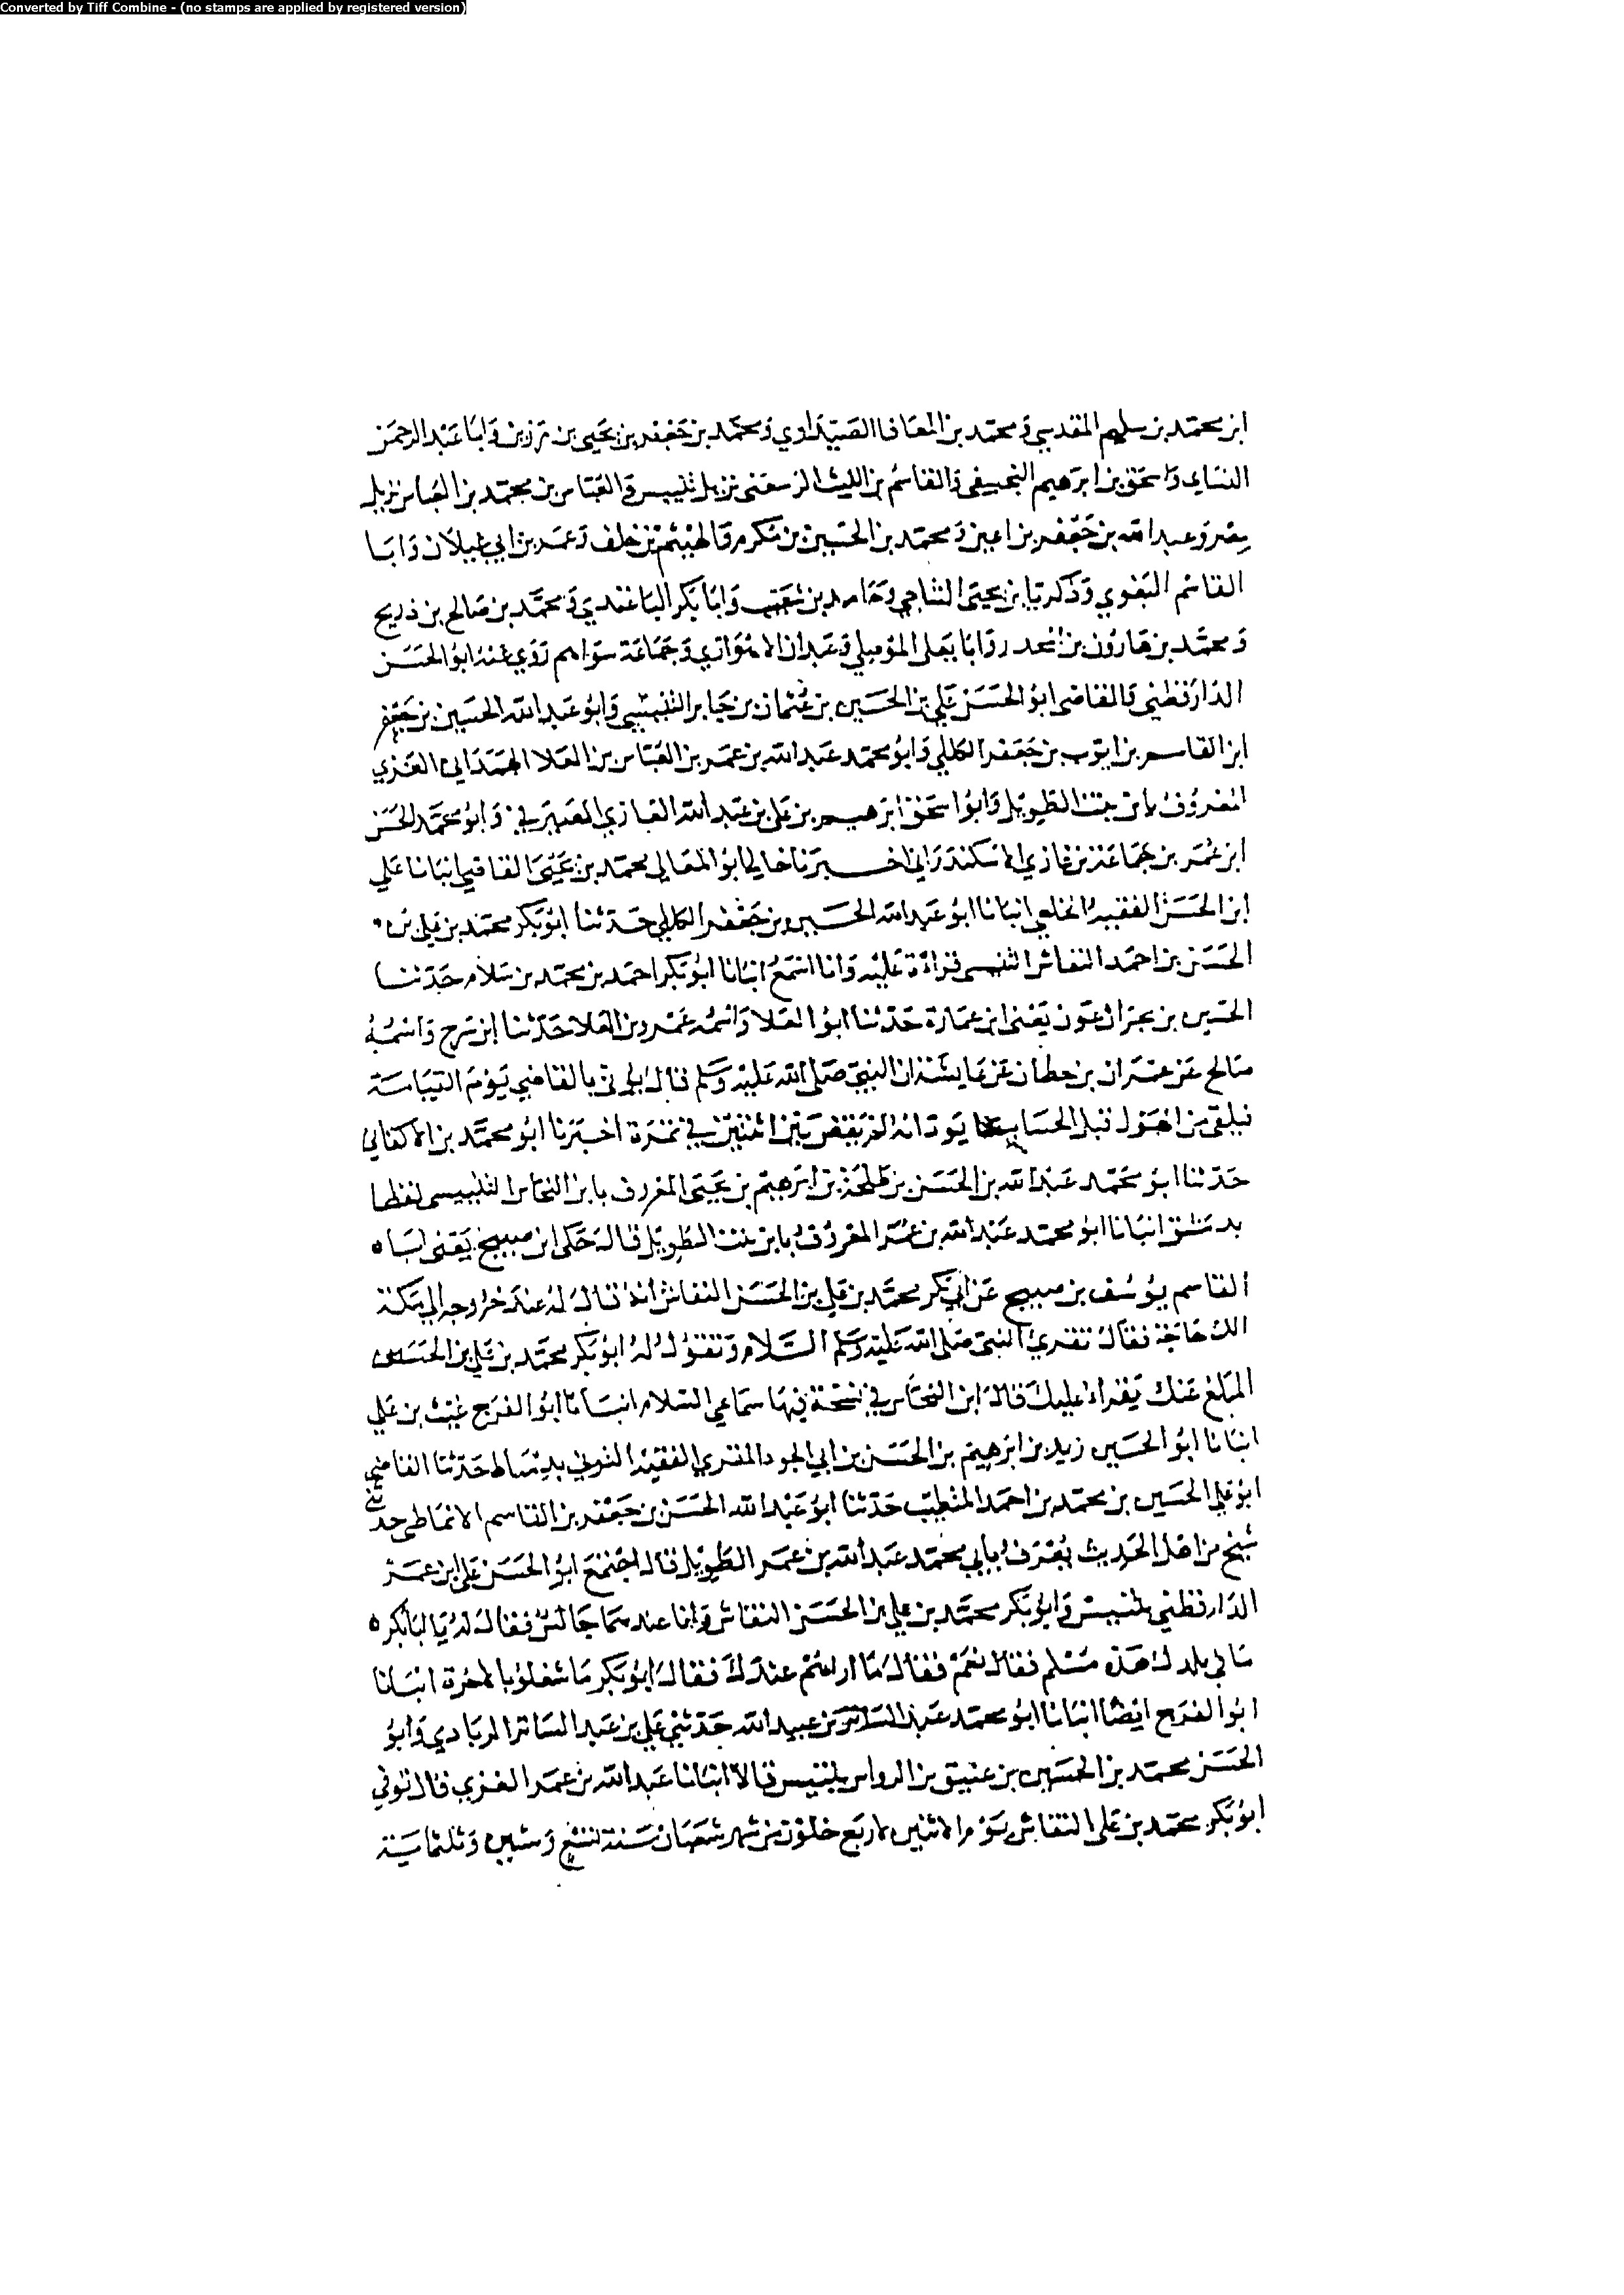 Converted by Tiff Combine - (no stamps are applied by registered version)
ابن محمد بن سليم المقدسي ومحمد بن المعافا الصيداوي ومحمد بن جعفر بن يحيى بن رزين وابا عبد الرحمن
النساي واسحق بن ابرهيم والقاسم بن الليث الرسعنى نزيل تنيس والعباس بن محمد بن العباس نزيل
مصر وعبد الله بن جعفر بن اعين ومحمد بن الحسين بن مكرم والهيثم بن خلف وعمر بن ابي غيلان وابا
القاسم البغوي وذكريا بن يحيى الساجي وحامد بن شعيب وابا بكر الباغندي ومحمد بن صالح بن ذريح
ومحمد بن هارون بن وابا يعلى الموصلي وعبدان الاهوازي وجماعة سواهم روى عنه ابو الحسن
الدارقطني والقاضى ابو الحسن علي بن الحسين بن عثمان بن جابر التنيسي وابو عبد الله الحسين بن جعفر
ابن القاسم بن ايوب بن جعفر الكللي وابو محمد عبد الله بن عمر بن العباس بن العلا الهمداني الغزي
المعروف بابن بنت الطويل وابو اسحق ابرهيم بن علي بن عبد الله الغازي وابو محمد الحسن
ابن عمر بن جماعة بن غازي الاسكندراني اخبرنا خالي ابو المعالي محمد بن يحيى القاضي انبانا علي
ابن الحسن الفقيه الخلعي انبانا ابو عبد الله الحسين بن جعفر الكللي حدثنا ابو بكر محمد بن علي بن
الحسن بن احمد النقاش التنيسى قراءة عليه وانا اسمع انبانا ابو بكر احمد بن محمد بن سلام حدثنا
الحسين بن بحر ابن عون يعنى ابن عمارة حدثنا ابو العلا واسمه عمرو بن العلا حدثنا ابن سرج واسمه
صالح عن عمران بن حطان عن عايشة ان النبي صلى الله عليه وسلم قال يوتى بالقاضي يوم القيامة
فيلقى من الهول قبل الحساب ما يود انه لم يقض بين اثنين في تمرة اخبرنا ابو محمد بن الاكفاني
حدثنا ابو محمد عبد الله بن الحسن بن طلحة بن ابرهيم بن يحيى المعروف بابن النحاس التنيسى لفظا
بدمشق انبانا ابو محمد عبد الله بن عمر المعروف بابن بنت الطويل قال حكى ابن صبيح يعنى ابا
القاسم يوسف بن صبيح عن ابي بكر محمد بن علي بن الحسن النقاش انه قال له عند خروجه الى مكة
الك حاجة فقال تقرئ النبى صلى الله عليه وسلم السلام وتقول له ابو بكر محمد بن علي بن الحسن
المبلغ عنك يقراء عليك قال ابن النحاس في نسخة فيها سماعي السلام انبانا ابو الفرج غيث بن علي
انبانا ابو الحسين زيد بن ابرهيم بن الحسن بن ابي الجود المقري الفقيه بدمياط حدثنا القاضي
ابو علي الحسين بن محمد بن احمد المتطبب حدثنا ابو عبد الله الحسن بن جعفر بن القاسم الانماطى حدثني
شيخ من اهل الحديث يعرف بابي محمد عبد الله بن عمر الطويل قال اجتمع ابو الحسن علي بن عمر
الدارقطني بتنيس وابو بكر محمد بن علي بن الحسن النقاش وانا عندهما جالس فقال له يا ابا بكر
ما في بلدك هذه مسلم فقال نعم فقال ما ارهم عندك فقال ابو بكر ما شغلوا بالاخرة انبانا
ابو الفرج ايضا انبانا ابو محمد عبد السلام بن عبيد الله حدثني علي بن عبد الساتر وابو
الحسن محمد بن الحسين بن عتيق بن الرواس بتنيس قالا انبانا عبد الله بن عمر الغزي قال توفي
ابو بكر محمد بن علي النقاش يوم الاثنين لاربع خلون من شهر شعبان سنة تسع وستين وثلثماية